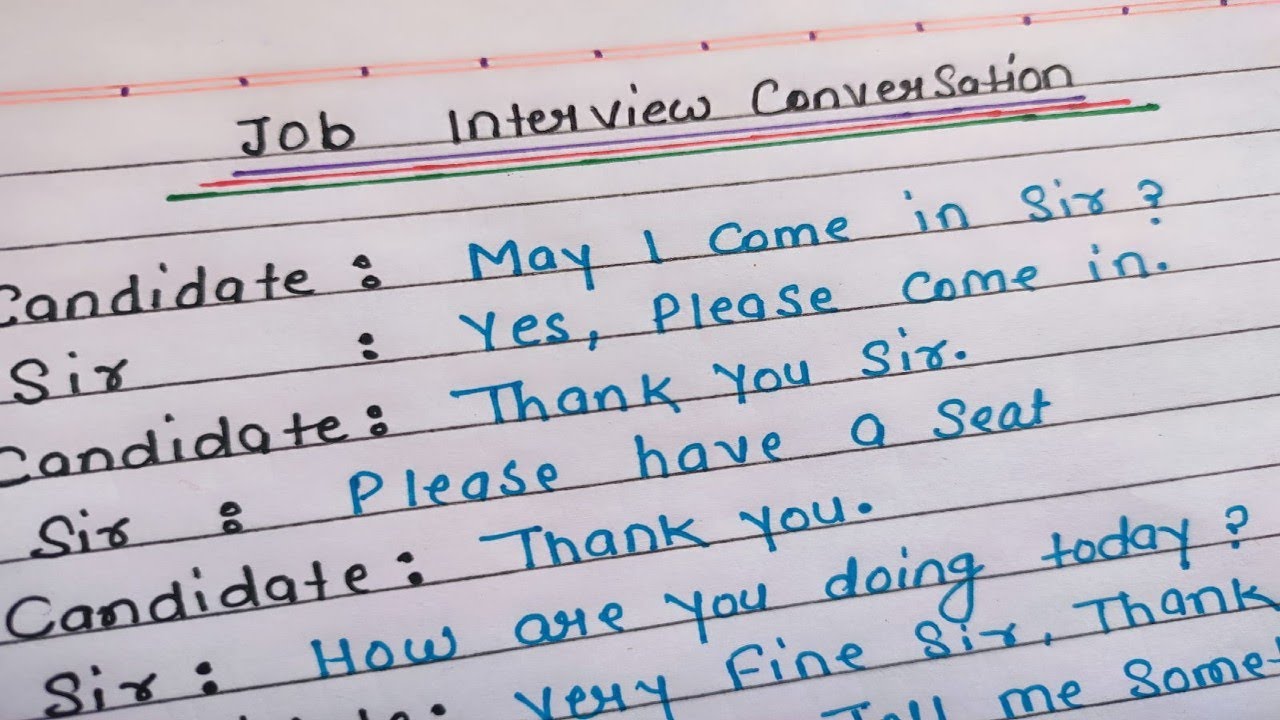 Job Interview Conversation
Candidate : May I come in Sir ?
Sir : Yes, Please come in.
Candidate : Thank you Sir.
Sir : Please have a Seat
Candidate : Thank you.
Sir : How are you doing today ?
: very Fine Sir, Thank
Tell me